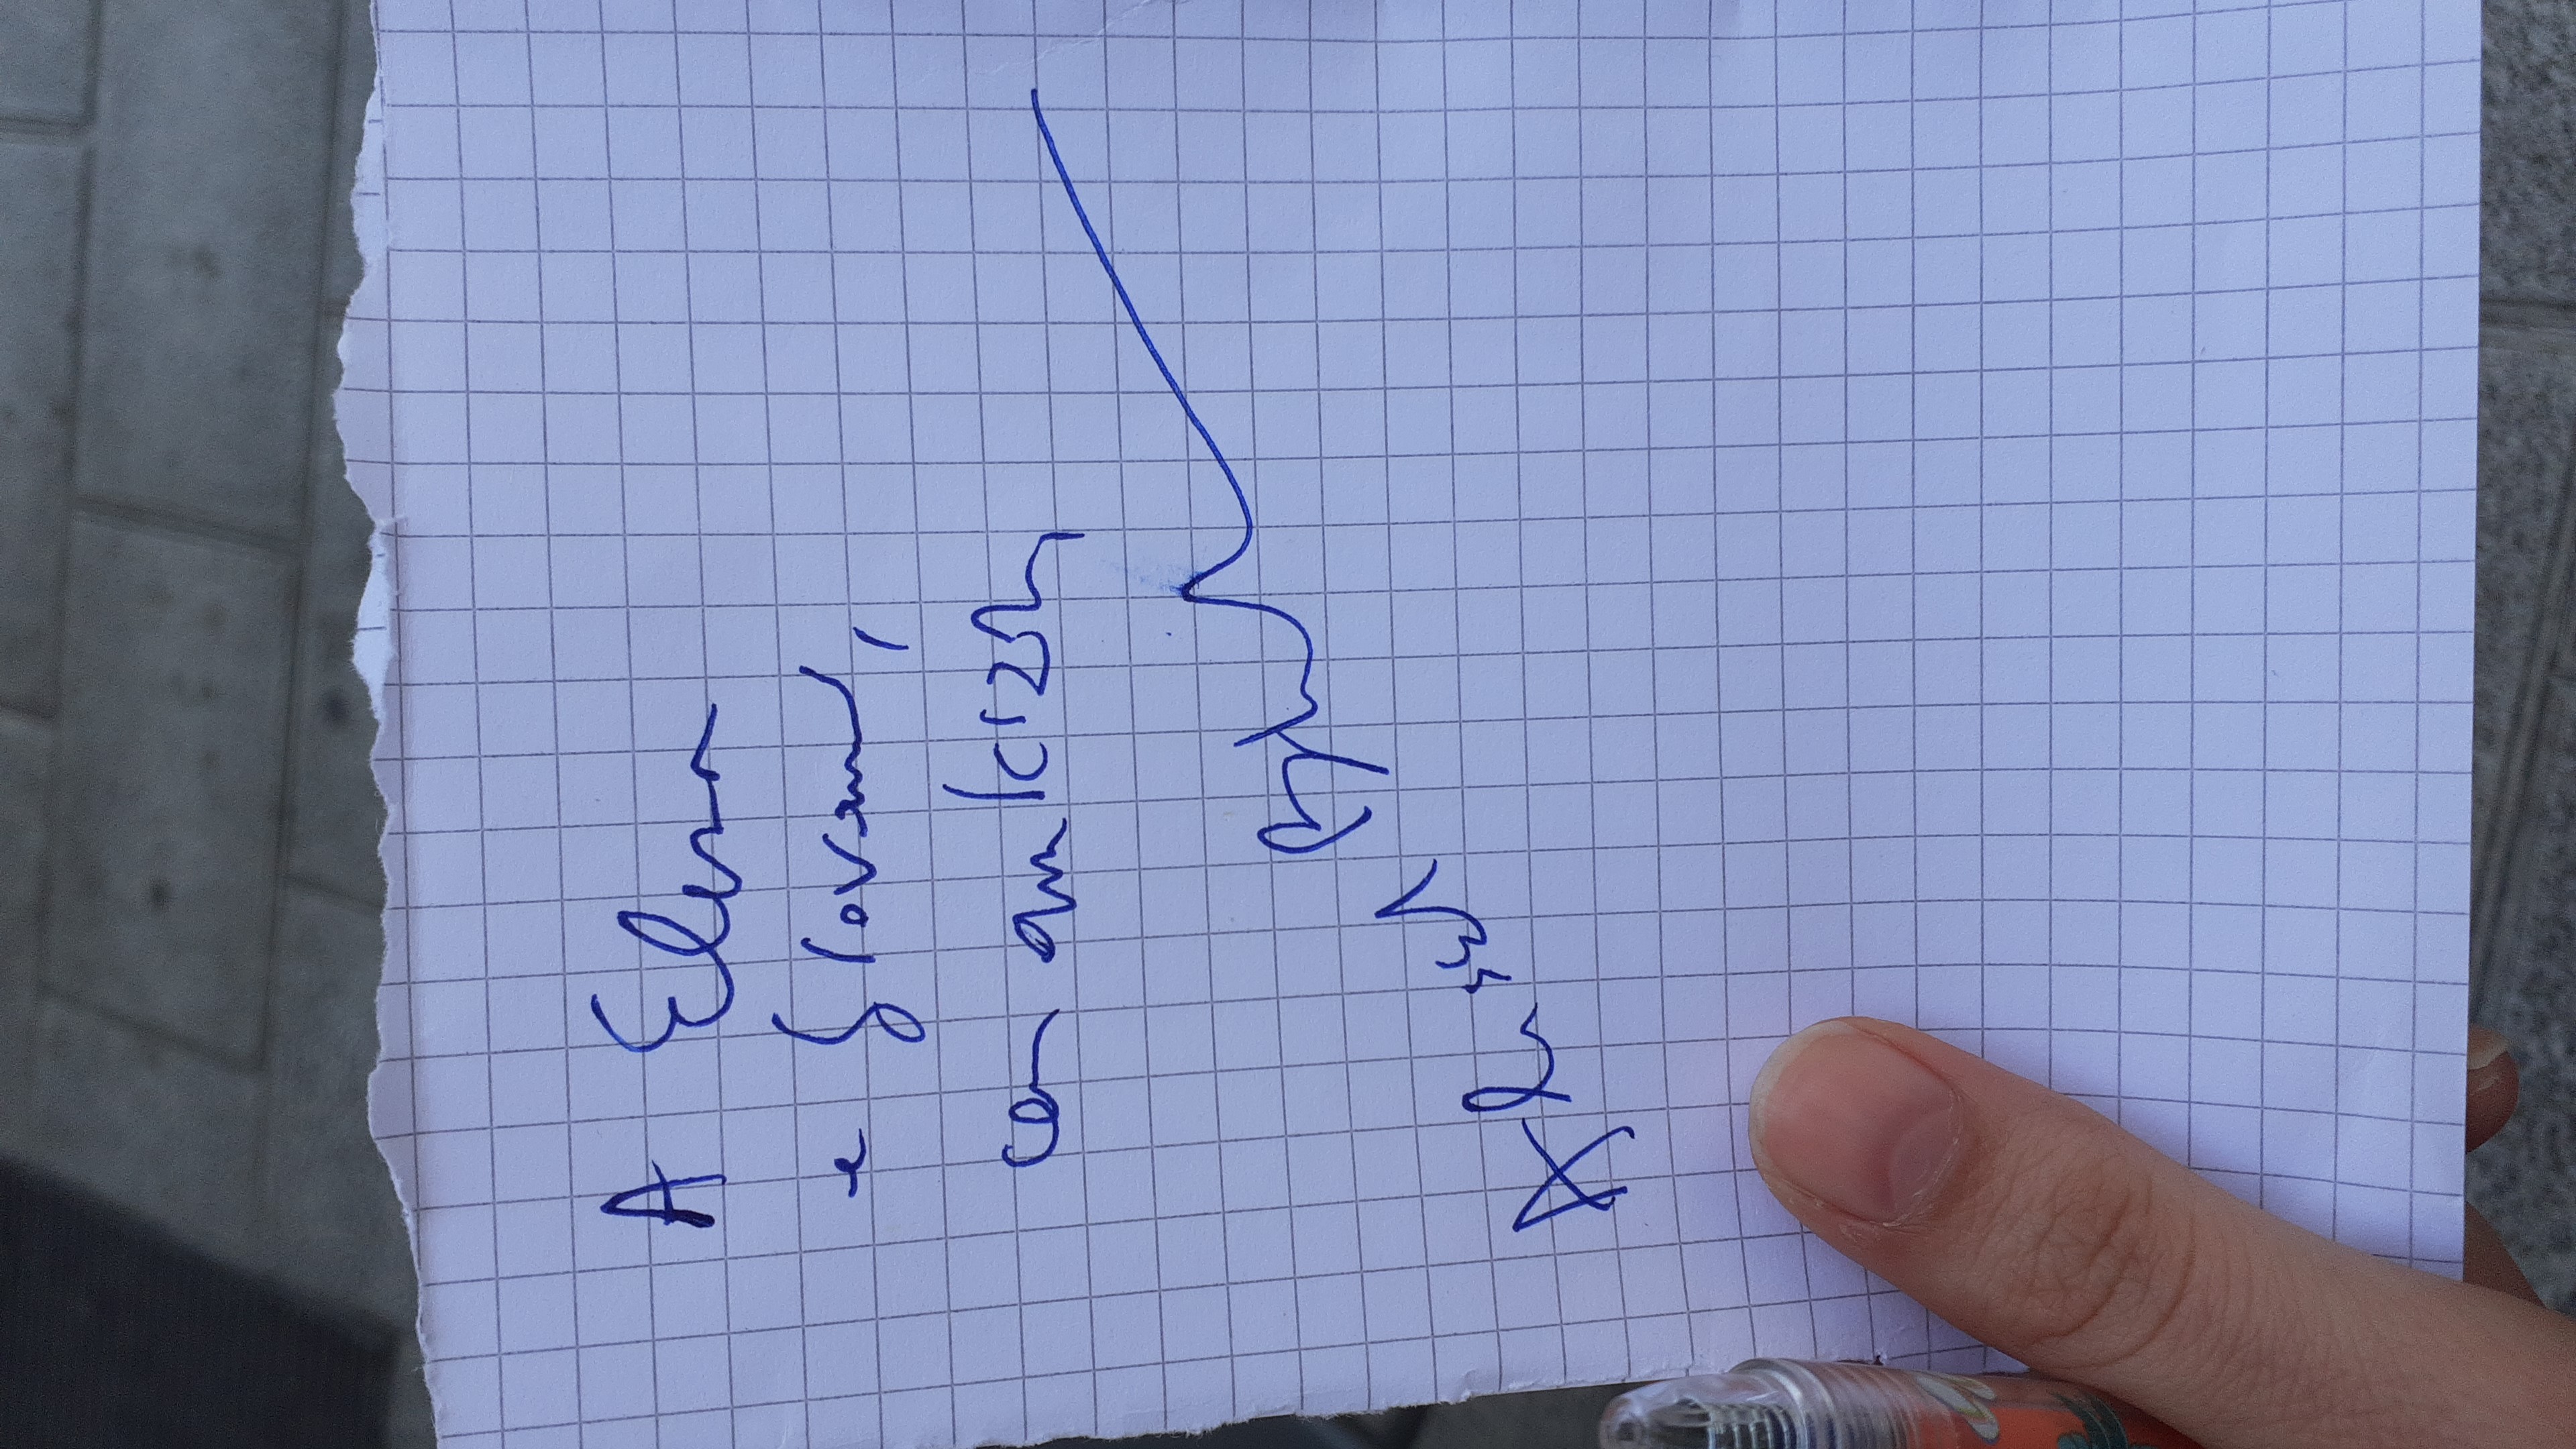 A Elena
e Giovanni,
con amicizia
Alessandro